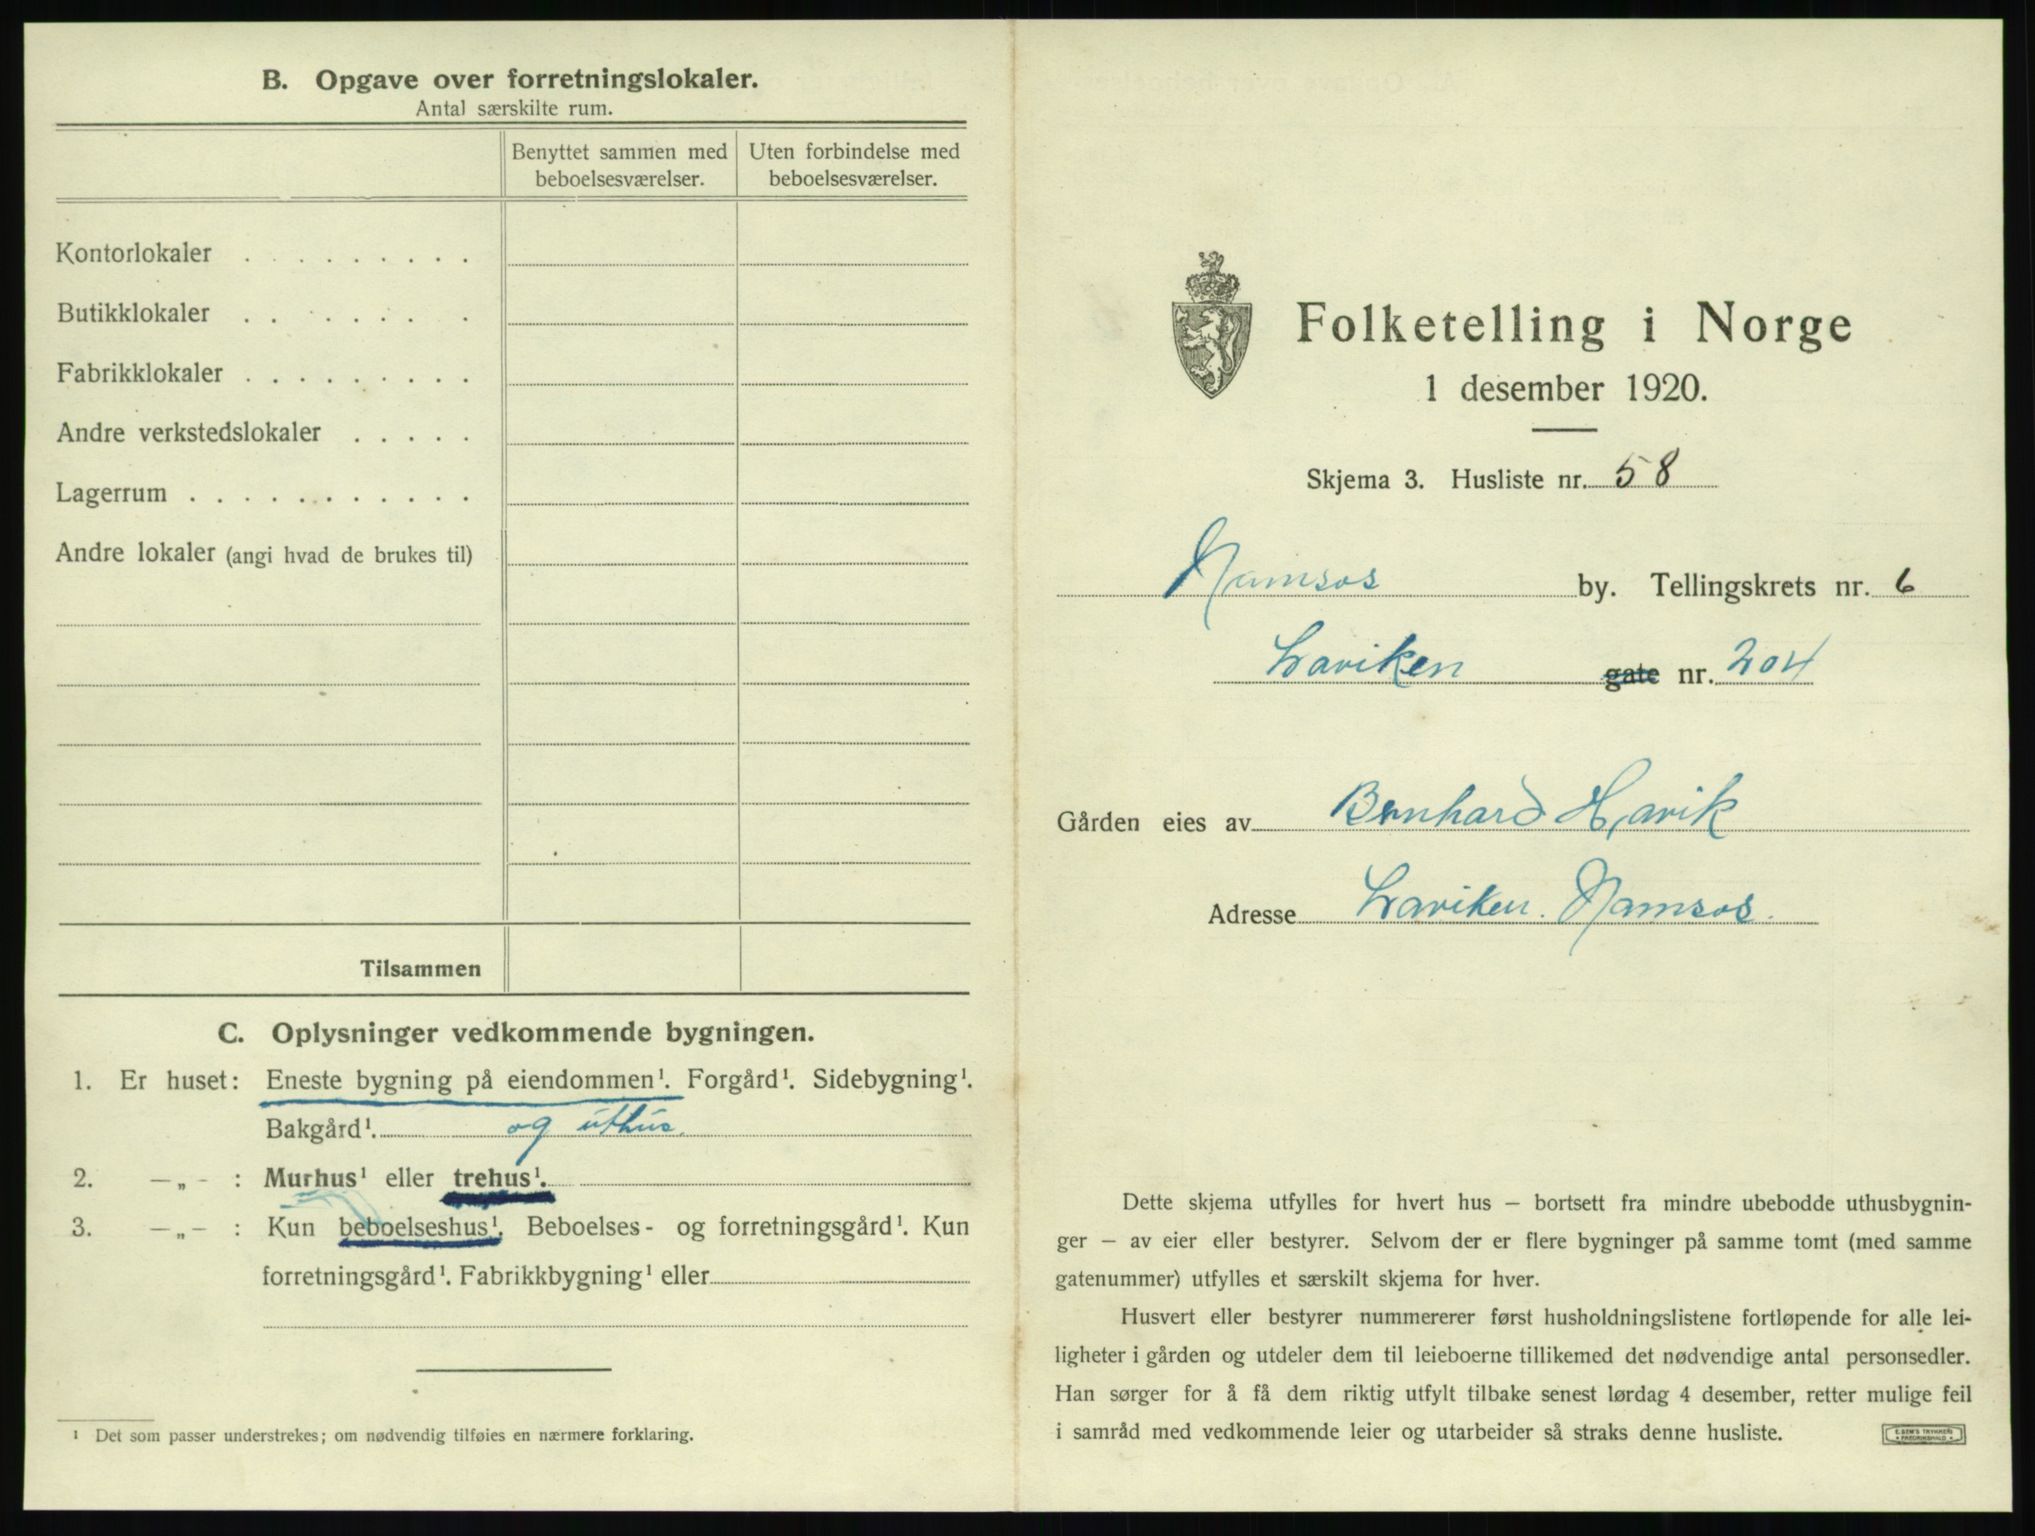 B. Opgave over forretningslokaler.
Antal særskilte rum.
Benyttet sammen med beboelsesværelser.
Uten forbindelse med beboelsesværelser.
Kontorlokaler . . . . . . . . .
Butikklokaler . . . . . . . .
Fabrikklokaler . . . . . . . . .
Andre verkstedslokaler . . . . .
Lagerrum . . . . . . . . . . .
Andre lokaler (angi hvad de brukes til)
Tilsammen
C. Oplysninger vedkommende bygningen.
1. Er huset: Eneste bygning på eiendommen¹. Forgård¹. Sidebygning¹.
Bakgård¹. og uthus.
2. —„— : Murhus¹ eller trehus¹.
3. —„— : Kun beboelseshus¹. Beboelses- og forretningsgård¹. Kun
forretningsgård¹. Fabrikkbygning¹ eller
¹ Det som passer understrekes; om nødvendig tilføies en nærmere forklaring.
Folketelling i Norge
1 desember 1920.
Skjema 3. Husliste nr. 58
Namsos by. Tellingskrets nr. 6
Laviken gate nr. 204
Gården eies av Bernhard Havik
Adresse Laviken. Namsos.
Dette skjema utfylles for hvert hus — bortsett fra mindre ubebodde uthusbygnin-
ger — av eier eller bestyrer. Selvom der er flere bygninger på samme tomt (med samme
gatenummer) utfylles et særskilt skjema for hver.
Husvert eller bestyrer nummererer først husholdningslistene fortløpende for alle lei-
ligheter i gården og utdeler dem til leieboerne tillikemed det nødvendige antal personsedler.
Han sørger for å få dem riktig utfylt tilbake senest lørdag 4 desember, retter mulige feil
i samråd med vedkommende leier og utarbeider så straks denne husliste.
E. SEM'S TRYKKERI
FREDRIKSHALD